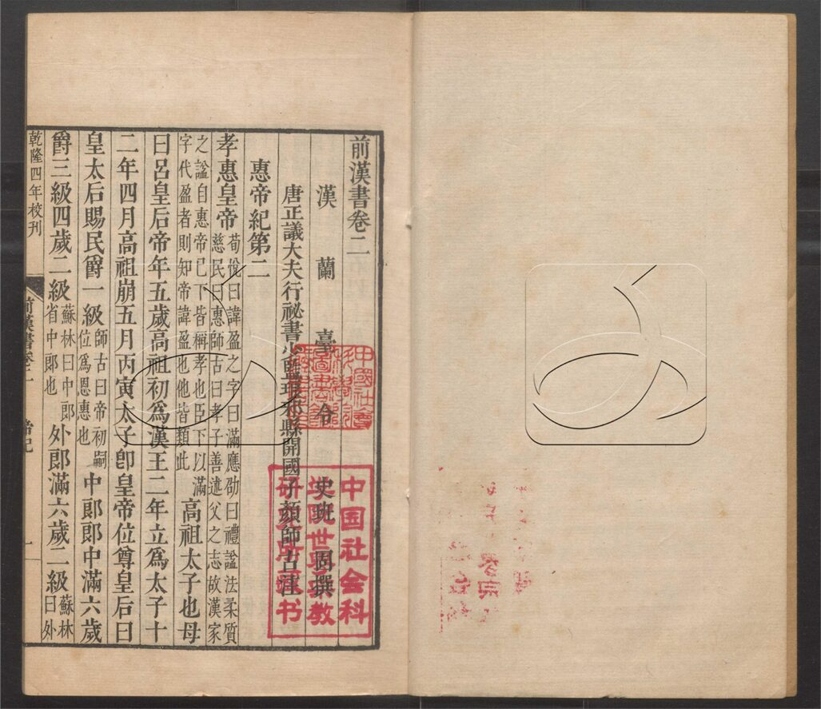 前漢書卷二
漢蘭臺令史班固撰
唐正議大夫行祕書少監琅邪縣開國子顏師古注
惠帝紀第二
孝惠皇帝荀悅曰諱盈之字曰滿應劭曰禮謚法柔質慈民曰惠師古曰孝子善述父之志故漢家
之謚自惠帝已下皆稱孝也臣下以滿字代盈者則知帝諱盈也他皆類此高祖太子也母
曰呂皇后帝年五歲高祖初為漢王二年立為太子十
二年四月高祖崩五月丙寅太子卽皇帝位尊皇后曰
皇太后賜民爵一級師古曰帝初嗣位為恩惠也中郎郎中滿六歲
爵三級四歲二級蘇林曰中郎省中郎也外郎滿六歲二級蘇林曰外
乾隆四年校刊
前漢書卷二
帝紀
一
中國社會
中国社会科
世
教
研
书